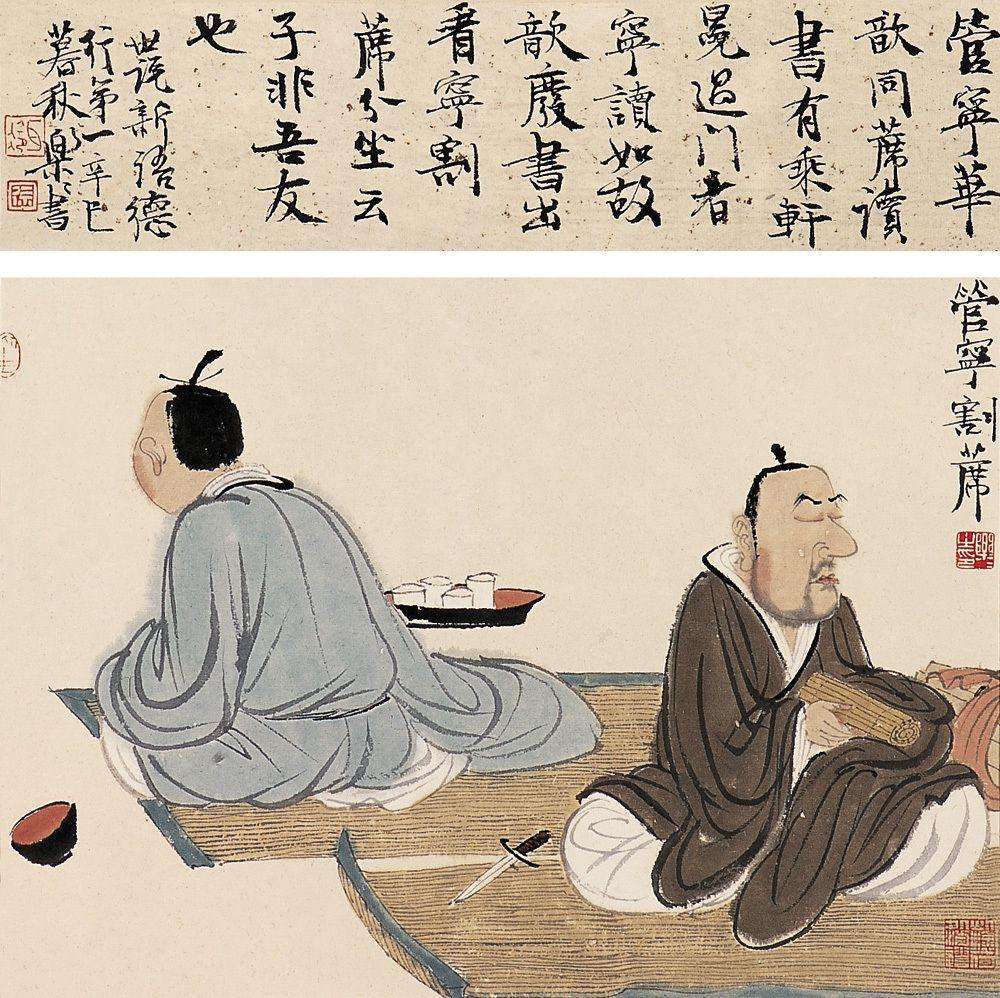 管寧華
歆同蓆讀
書有乘軒
冕過門者
寧讀如故
歆廢書出
看寧割
蓆分坐云
子非吾友
也
世說新語德
行第一辛巳
暮秋樂樂書
管寧割蓆